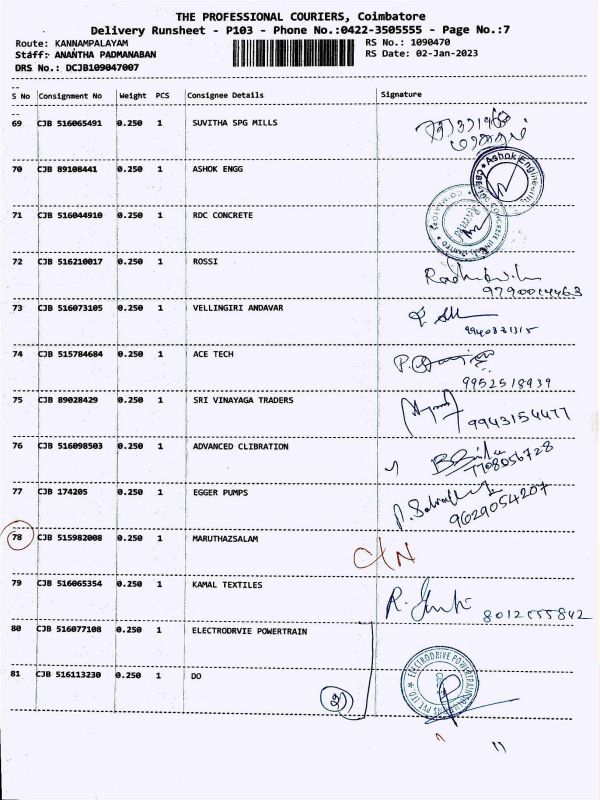 THE PROFESSIONAL COURIERS, Coimbatore
Delivery Runsheet - P103 - Phone No.:0422-3505555 - Page No.:7
Route: KANNAMPALAYAM RS No.: 1090470
Staff: ANANTHA PADMANABAN RS Date: 02-Jan-2023
DRS No.: DCJB109047007
S No Consignment No Weight PCS Consignee Details Signature
69 CJB 516065491 0.250 1 SUVITHA SPG MILLS
70 CJB 89108441 0.250 1 ASHOK ENGG
Ashok Engineering
71 CJB 516044910 0.250 1 RDC CONCRETE
72 CJB 516210017 0.250 1 ROSSI
9790014463
73 CJB 516073105 0.250 1 VELLINGIRI ANDAVAR
9940331315
74 CJB 515784684 0.250 1 ACE TECH
9952518939
75 CJB 89028429 0.250 1 SRI VINAYAGA TRADERS
9943154477
76 CJB 516098503 0.250 1 ADVANCED CLIBRATION
7708056728
77 CJB 174205 0.250 1 EGGER PUMPS
9629054207
78 CJB 515982008 0.250 1 MARUTHAZSALAM
C/N
79 CJB 516065354 0.250 1 KAMAL TEXTILES
80 CJB 516077108 0.250 1 ELECTRODRVIE POWERTRAIN
81 CJB 516113230 0.250 1 DO
ELECTRODRIVE POWERTRAIN